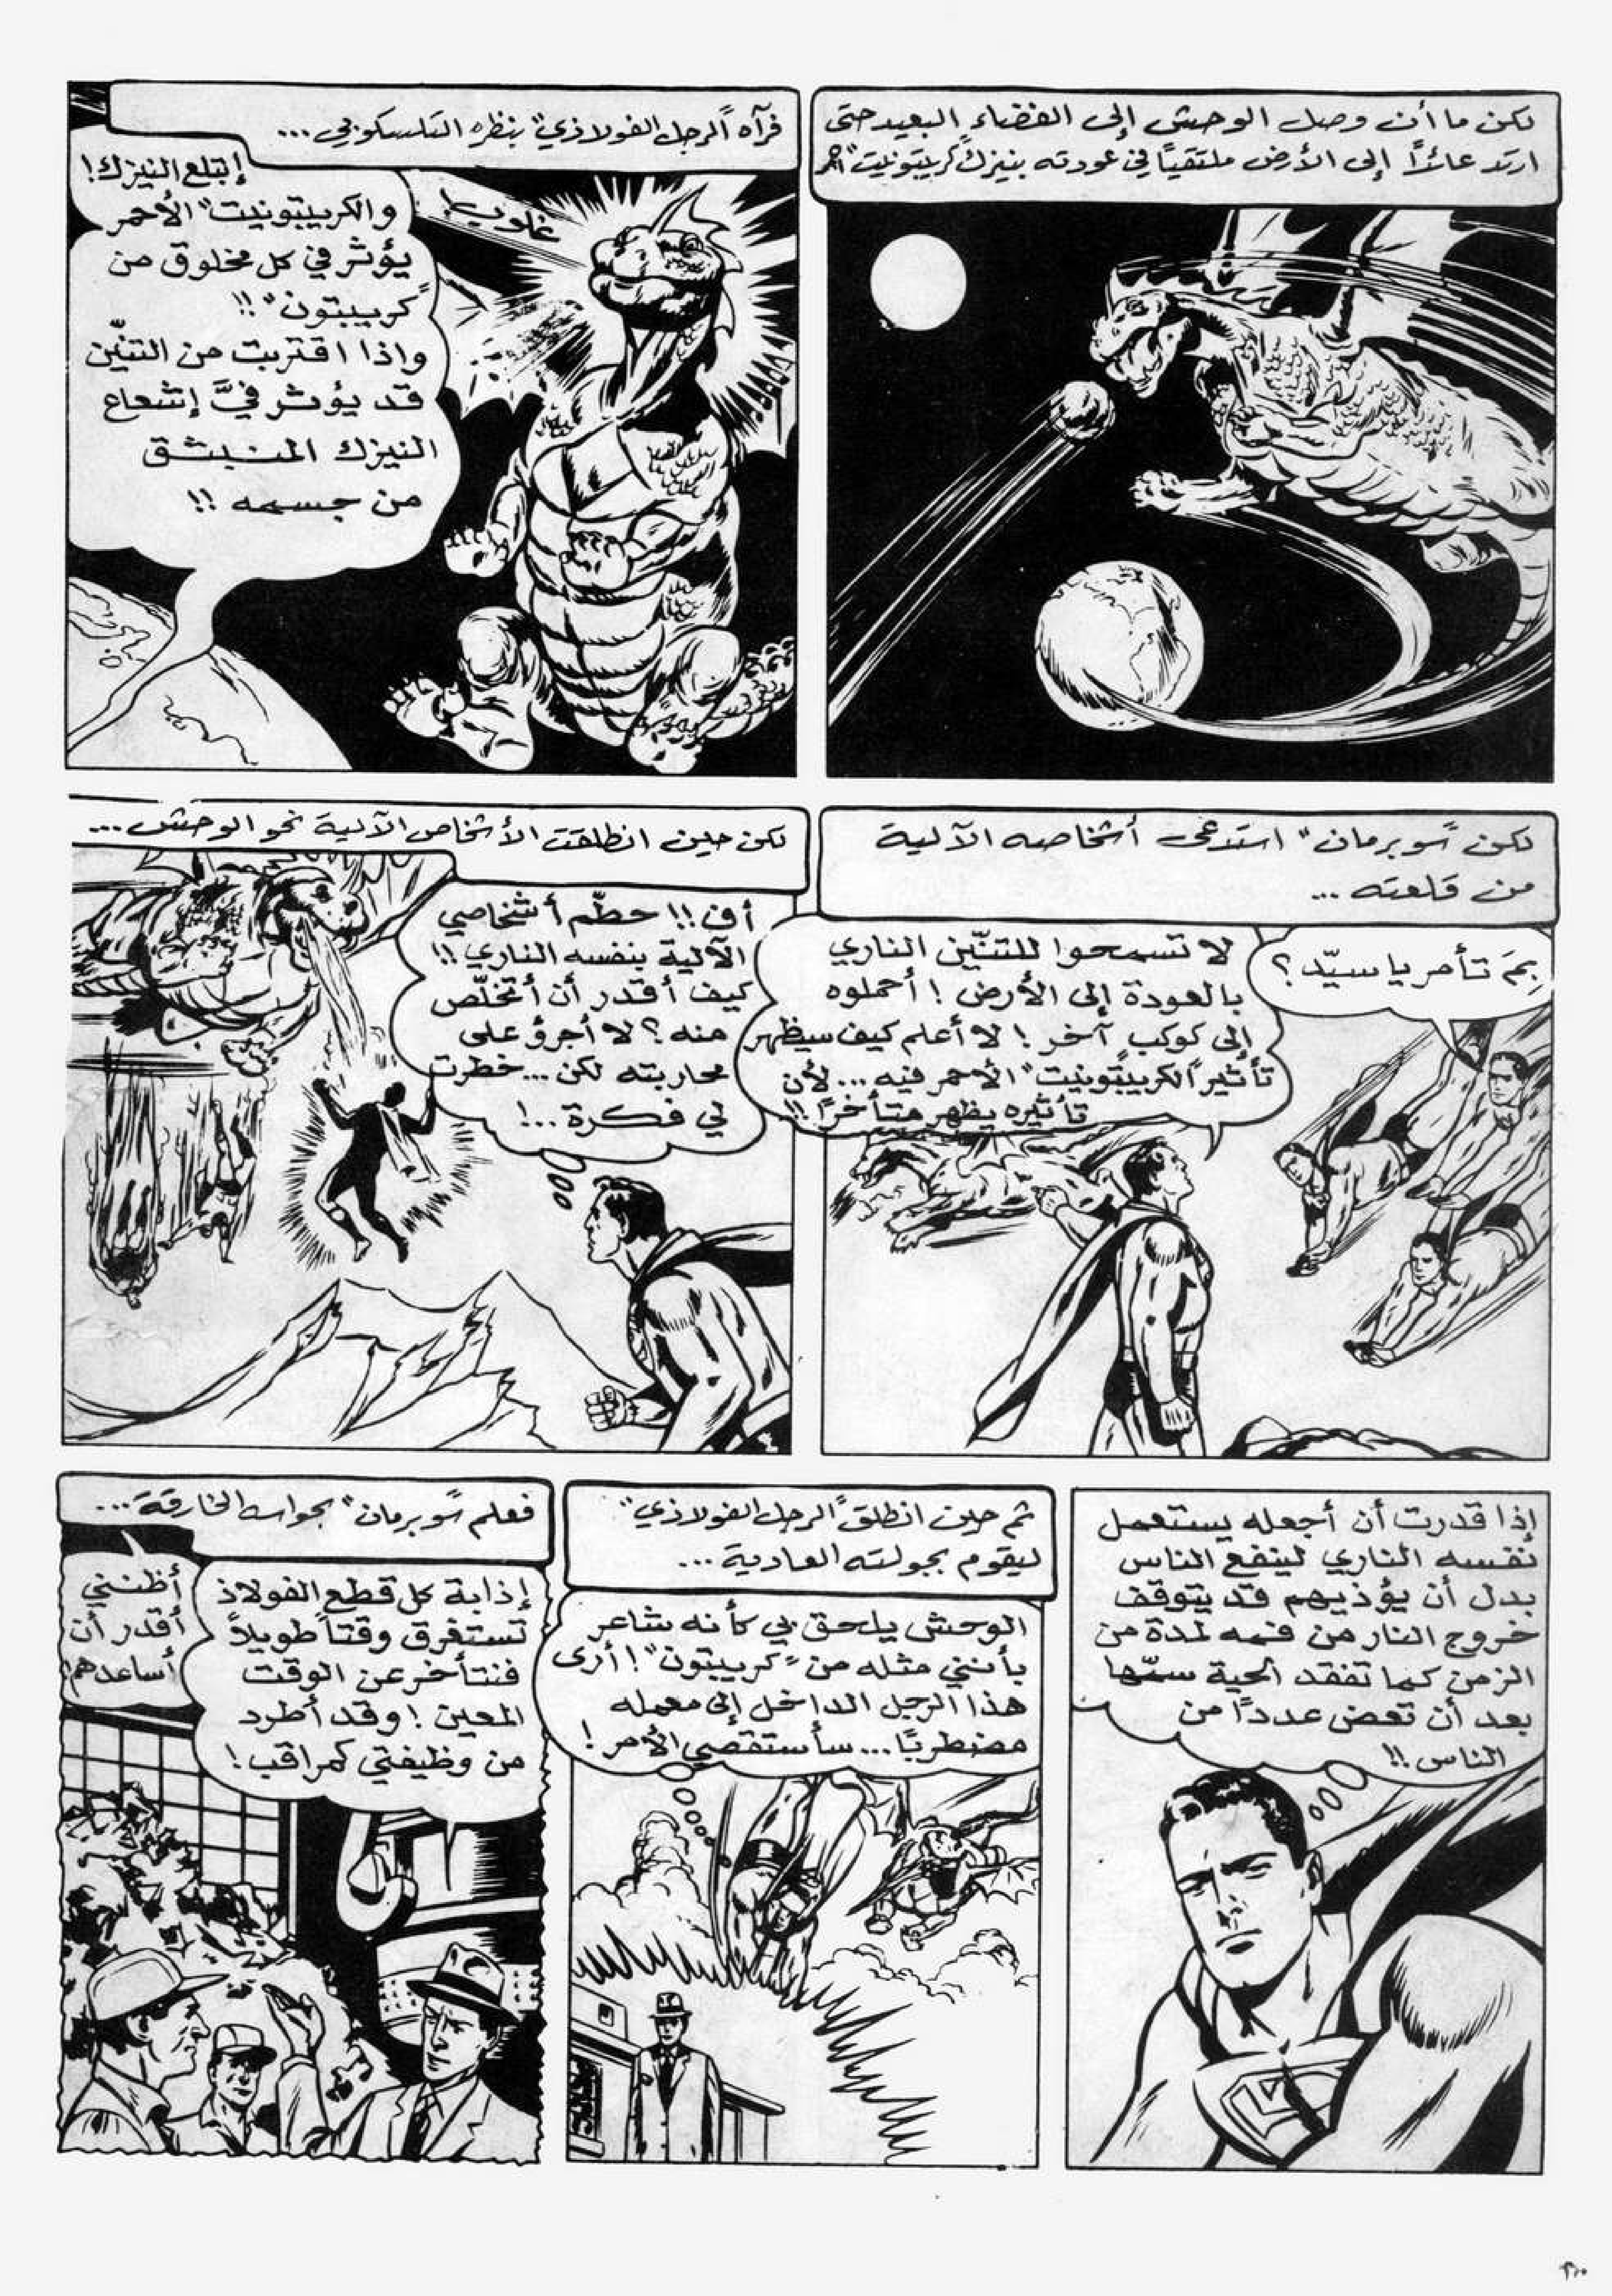 لكن ما أن وصل الوحش إلى الفضاء البعيد حتى
ارتد عائداً إلى الأرض ملتقياً في عودته بنيزك "كريبتونيت" أحمر
فرآه "الرجل الفولاذي" بنظره التلسكوبي ...
إبتلع النيزك!
و"الكريبتونيت" الأحمر
يؤثر في كل مخلوق من
"كريبتون" !!
واذا اقتربت من التنّين
قد يؤثر فيَّ إشعاع
النيزك المنبثق
من جسمه !!
غلوب!
لكن "سوبرمان" استدعى أشخاصه الآلية
من قلعته ...
بِمَ تأمر يا سيّد ؟
لا تسمحوا للتنّين الناري
بالعودة إلى الأرض ! أحملوه
إلى كوكب آخر ! لا أعلم كيف سيظهر
تأثير "الكريبتونيت" الأحمر فيه ... لأن
تأثيره يظهر متأخراً !!
لكن حين انطلقت الأشخاص الآلية نحو الوحش ...
أف !! حطّم أشخاصي
الآلية بنفسه الناري !!
كيف أقدر أن أتخلّص
منه ؟ لا أجرؤ على
محاربته لكن ... خطرت
لي فكرة ...!
إذا قدرت أن أجعله يستعمل
نفسه الناري لينفع الناس
بدل أن يؤذيهم قد يتوقف
خروج النار من فمه لمدة من
الزمن كما تفقد الحية سمّها
بعد أن تعض عدداً من
الناس !!
ثم حين انطلق "الرجل الفولاذي"
ليقوم بجولته العادية ...
الوحش يلحق بي كأنه شاعر
بأنني مثله من "كريبتون" ! أرى
هذا الرجل الداخل إلى معمله
مضطرباً ... سأستقصي الأمر !
فعلم "سوبرمان" بحواسه الخارقة ...
إذابة كل قطع الفولاذ
تستغرق وقتاً طويلاً
فنتأخر عن الوقت
المعين ! وقد أطرد
من وظيفتي كمراقب !
أظنني
أقدر أن
أساعدهم